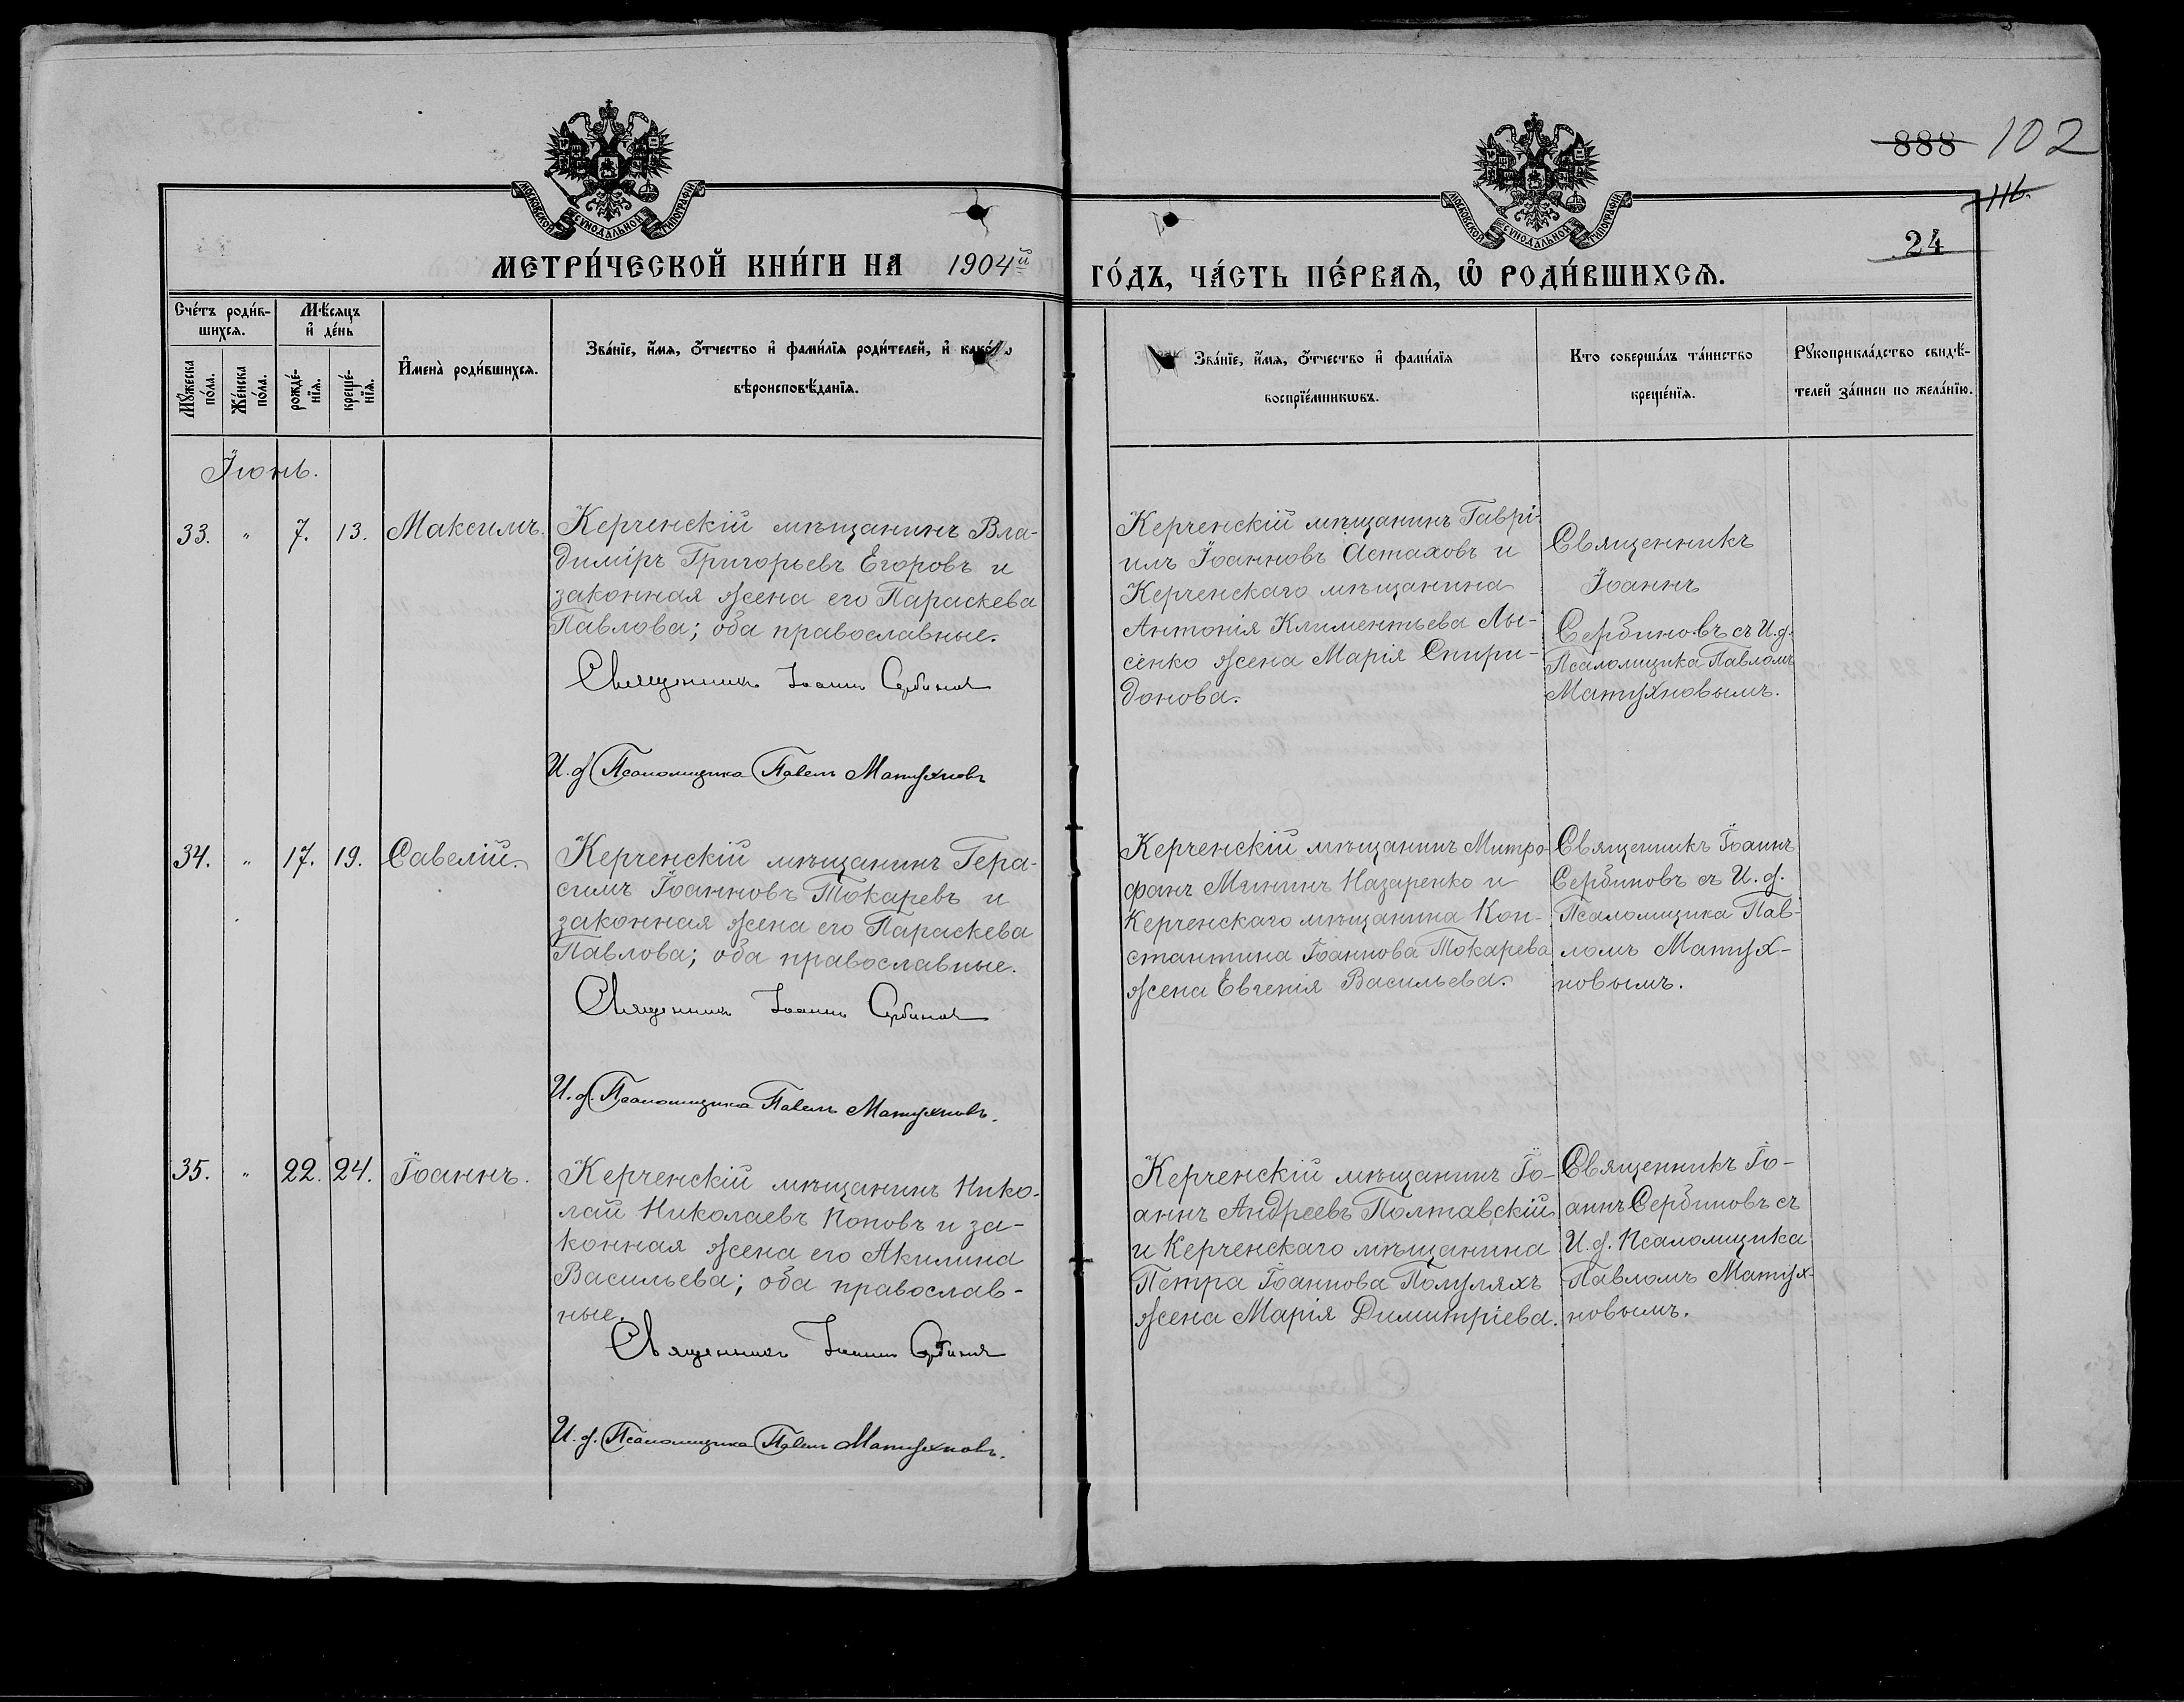 888 102
116.
24
МОСКОВСКОЙ СѴНОДАЛЬНОЙ ТИПОГРАФІИ
МОСКОВСКОЙ СѴНОДАЛЬНОЙ ТИПОГРАФІИ
МЕТРИ́ЧЕСКОЙ КНИ́ГИ НА 1904й
ГО́ДЪ, ЧА́СТЬ ПЕ́РВАѦ, Ѡ҆ РОДИ́ВШИХСѦ.
Сче́тъ роди́в-
шихсѧ.
Мꙋ́жеска по́ла.
Же́нска по́ла.
Мѣ́сѧцъ
и҆ де́нь
рожде́-
нїѧ.
креще́-
нїѧ.
И҆мена̀ роди́вшихсѧ.
Зва́нїе, и҆́мѧ, ѻ҆́тчество и҆ фами́лїѧ роди́телей, и҆ како́гѡ
вѣроисповѣ́данїѧ.
Зва́нїе, и҆́мѧ, ѻ҆́тчество и҆ фами́лїѧ
воспрїе́мникѡвъ.
Кто соверша́лъ та́инство
креще́нїѧ.
Рꙋкоприкла́дство свидѣ́-
телей за́писи по жела́нїю.
Іюнь.
33. " 7. 13. Максимъ.
Керченскій мѣщанинъ Вла-
диміръ Григорьевъ Егоровъ и
законная жена его Параскева
Павлова; оба православные.
Священникъ Іоаннъ Сербиновъ
И.д. Псаломщика Павелъ Матухновъ
Керченскій мѣщанинъ Гаврі-
илъ Іоанновъ Астаховъ и
Керченскаго мѣщанина
Антонія Климентьева Лы-
сенко жена Марія Спири-
донова.
Священникъ
Іоаннъ
Сербиновъ съ И.д.
Псаломщика Павломъ
Матухновымъ.
34. " 17. 19. Савелій.
Керченскій мѣщанинъ Гера-
симъ Іоанновъ Токаревъ и
законная жена его Параскева
Павлова; оба православные.
Священникъ Іоаннъ Сербиновъ
И.д. Псаломщика Павелъ Матухновъ.
Керченскій мѣщанинъ Митро-
фанъ Мининъ Назаренко и
Керченскаго мѣщанина Кон-
стантина Іоаннова Токарева
жена Евгенія Васильева.
Священникъ Іоаннъ
Сербиновъ съ И.д.
Псаломщика Пав-
ломъ Матух-
новымъ.
35. " 22. 24. Іоаннъ.
Керченскій мѣщанинъ Нико-
лай Николаевъ Поповъ и за-
конная жена его Акилина
Васильева; оба православ-
ные.
Священникъ Іоаннъ Сербиновъ
И.д. Псаломщика Павелъ Матухновъ.
Керченскій мѣщанинъ Іо-
аннъ Андреевъ Полтавскій
и Керченскаго мѣщанина
Петра Іоаннова Помуляхъ
жена Марія Димитріева.
Священникъ Іо-
аннъ Сербиновъ съ
И.д. Псаломщика
Павломъ Матух-
новымъ.